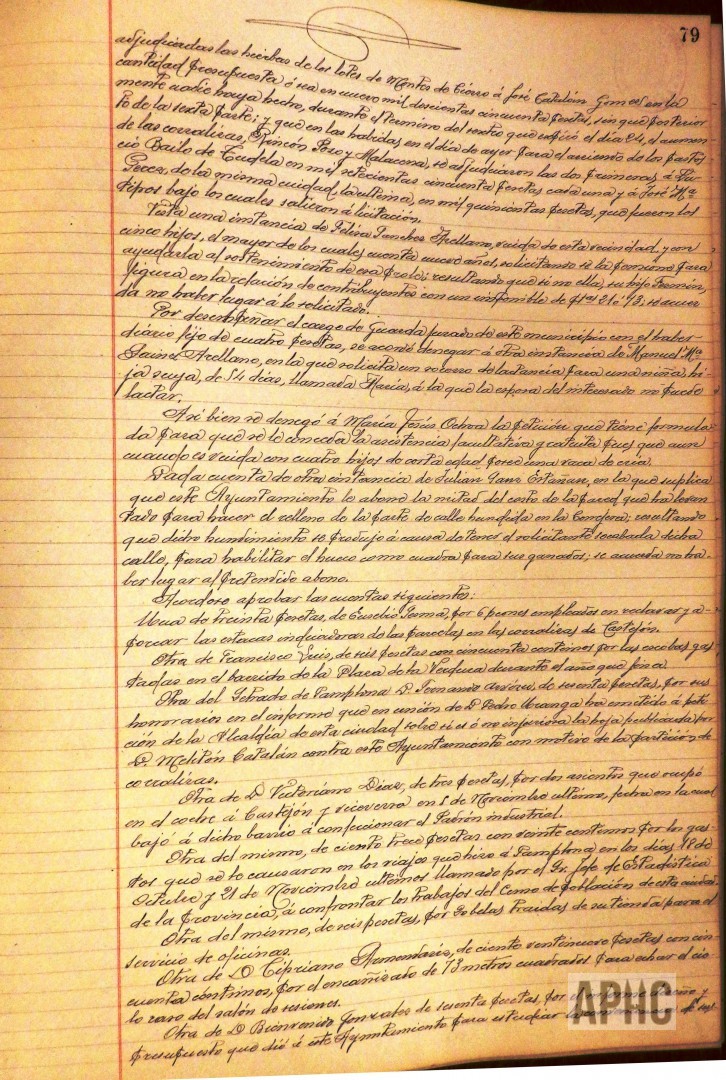 79
adjudicadas las hierbas de los lotes de Montes de Cierzo á José Catalán Gomez en la
cantidad presupuesta ó sea en nueve mil doscientas cincuenta pesetas, sin que posterior
mente nadie haya hecho, durante el termino del sexteo que espiró el día 24, el aumen
to de la sexta parte; y que en las habidas en el día de ayer para el arriendo de los pastos
de las corralizas, Rincón, Pozo y Malacena, se adjudicaron las dos primeras á
cio Bailo de Tudela en mil setecientas cincuenta pesetas cada una y á José Mª
Perez, de la misma ciudad, la ultima, en mil quinientas pesetas, que fueron los
tipos bajo los cuales salieron á licitación.
Vista una instancia de Felisa Sanchez Arellano, viuda de esta vecindad, y con
cinco hijos, el mayor de los cuales cuenta nueve años, solicitando se la pensione para
ayudarla al sostenimiento de esa prole: resultando que si no ella, su hijo Fermín,
figura en la relación de contribuyentes con un imponible de ptas 210'93: se acuer
da no haber lugar á lo solicitado.
Por desempeñar el cargo de Guarda jurado de este municipio con el haber
diario fijo de cuatro pesetas, se acordó denegar á otra instancia de Manuel Mª
Sainez Arellano, en la que solicita un socorro de lactancia para una niña, hi
ja suya, de 54 días, llamada María, á la que la esposa del interesado no puede
lactar.
Asi bien se denegó á María Jesús Ochoa la petición que tiene formula
da para que se le conceda la asistencia facultativa gratuita pues que aun
cuando es viuda con cuatro hijos de corta edad posee una vaca de cria.
Dada cuenta de otra instancia de Julián Sanz Estañan, en la que suplica
que este Ayuntamiento le abone la mitad del costo de la pared que ha levan
tado para hacer el relleno de la parte de calle hundida en la ; resultando
que dicho hundimiento se produjo á causa de tener el solicitante socabada dicha
calle, para habilitar el hueco como cuadra para sus ganados; se acuerda no ha
ber lugar al pretendido abono.
Acordose aprobar las cuentas siguientes:
Una de treinta pesetas, de Eusebio por 6 peones empleados en reclavar y a-
porcar las estacas indicadoras de las parcelas en las corralizas de Castejón.
Otra de Francisco Luis, de seis pesetas con cincuenta centimos por las escobas gas
tadas en el barrido de la Plaza de la Verdura durante el año que finó.
Otra del Letrado de Pamplona D. de sesenta pesetas, por sus
honorarios en el informe que en unión de D. Pedro Uranga ha emitido á peti
ción de la Alcaldía de esta ciudad sobre si es ó no injuriosa la hoja publicada por
D. Melitón Catalán contra este Ayuntamiento con motivo de la partición de
corralizas.
Otra de D. Victoriano Diaz, de tres pesetas, por dos asientos que ocupó
en el coche á Castejón y viceversa en 5 de Noviembre ultimo, fecha en la cual
bajó á dicho barrio á confeccionar el Padrón industrial.
Otra del mismo, de ciento trece pesetas con veinte centimos por los gas-
tos que se le causaron en los viajes que hizo á Pamplona en los dias 18 de
Octubre y 21 de Noviembre ultimos llamado por el Sr. Jefe de Estadística
de la provincia, á confrontar los trabajos del Censo de población de esta ciudad.
Otra del mismo, de seis pesetas, por traidas de su tienda para el
servicio de oficinas.
Otra de D. Cipriano Armendariz, de ciento veintinueve pesetas con cin-
cuenta céntimos, por el encañizado de 73 metros cuadrados para echar el cie-
lo raso del salón de sesiones.
Otra de D. Bienvenido Gonzalez de sesenta pesetas, por el y
presupuesto que dió á este Ayuntamiento para estudiar la
APHC